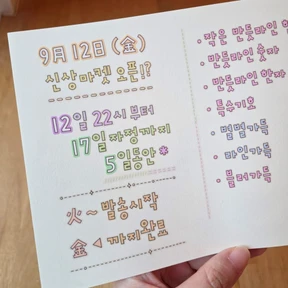 9月 12日 (金)
신상마켓 오픈!?
12일 22시 부터
17일 자정까지
5일동안*
火 ~ 발송시작
金 < 까지완료
• 작은 반듯라인 한
• 반듯라인 숫자
• 반듯라인 한자
• 특수기호
• 라인가득
• 블러가득